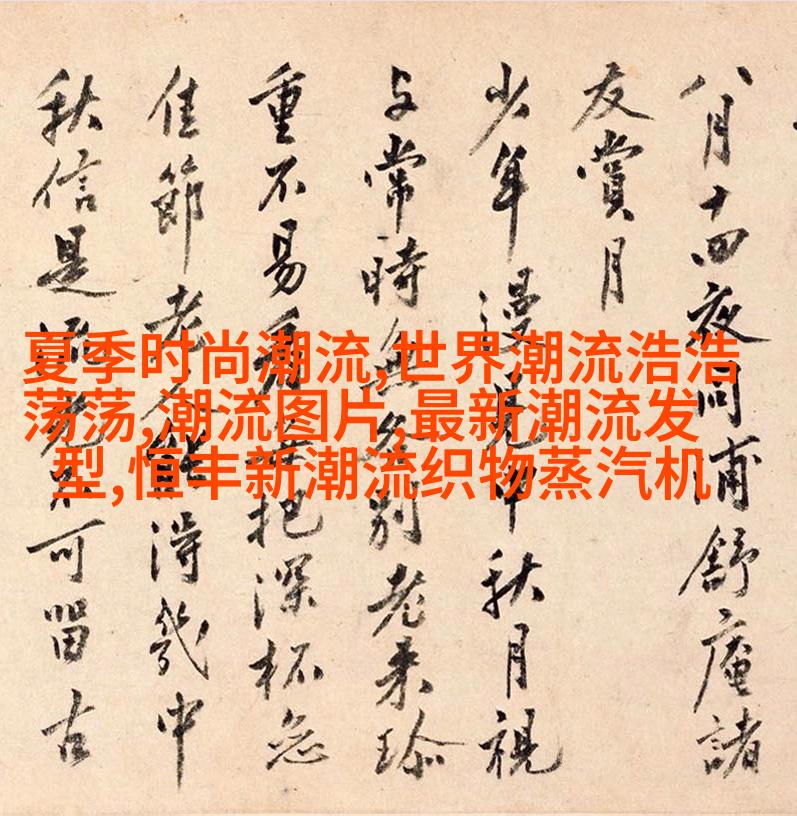 八月十四夜同浦舒庵諸
友賞月
少年漫見中秋月視
与常時無分別老来珎
重不易看把深杯念
佳節老人能得幾中
秋信是流光不可留古
夏季时尚潮流,世界潮流浩浩
荡荡,潮流图片,最新潮流发
型,恒丰新潮流织物蒸汽机